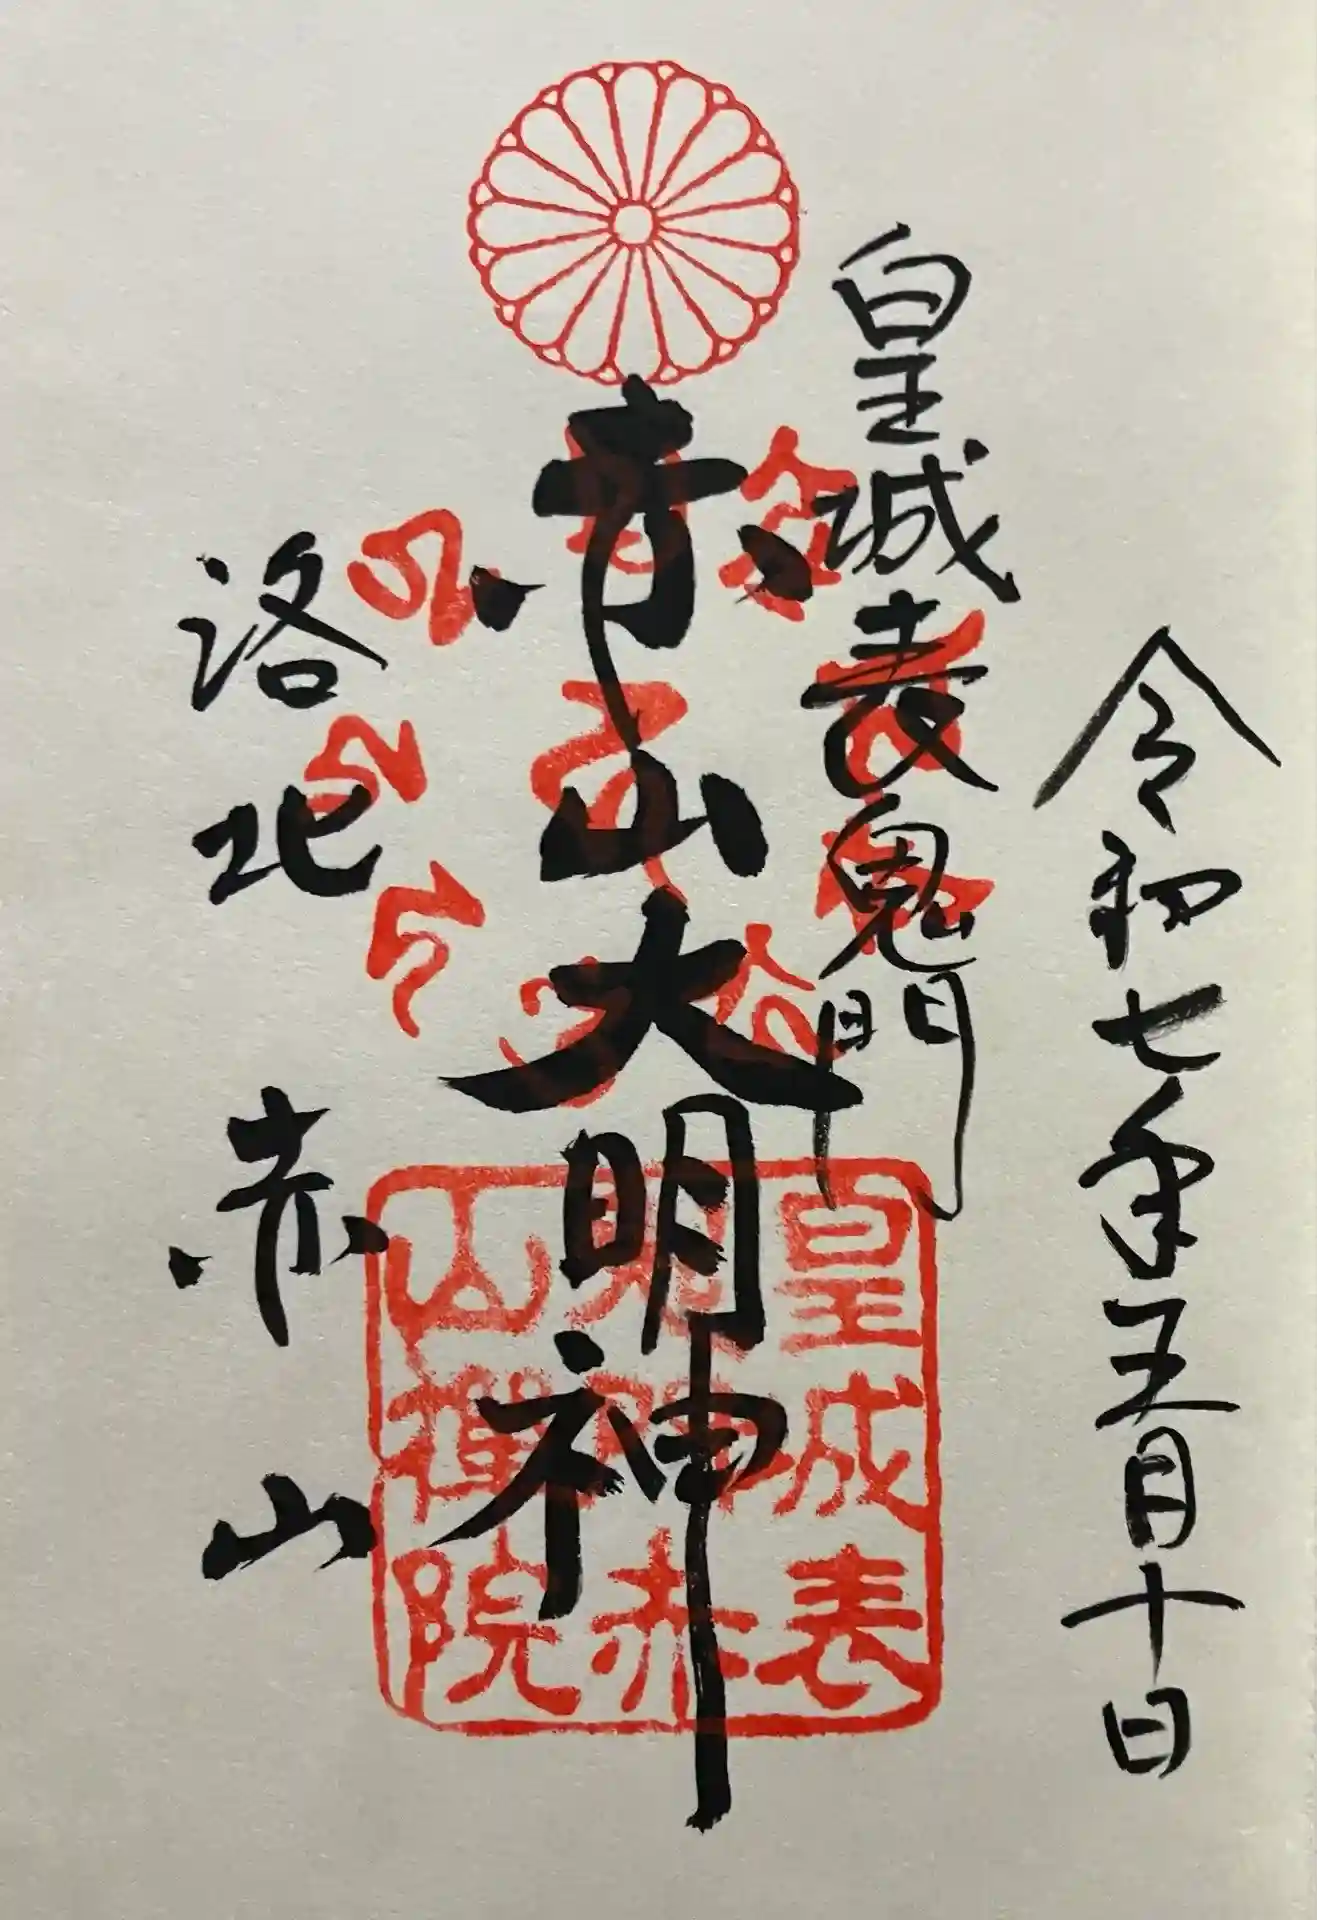 令和七年五月十日
皇城表鬼門
赤山大明神
洛北 赤山
皇城表
赤
山禅院